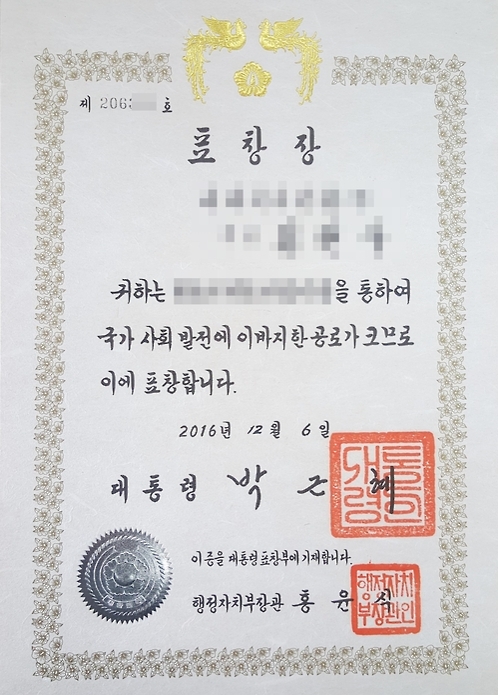 제 206 호
표창장
귀하는 을 통하여
국가 사회 발전에 이바지한 공로가 크므로
이에 표창합니다.
2016년 12월 6일
대통령 박근혜
대통령의인
이 증을 대통령표창부에 기재합니다.
행정자치부장관 홍윤식
행정자치부장관인